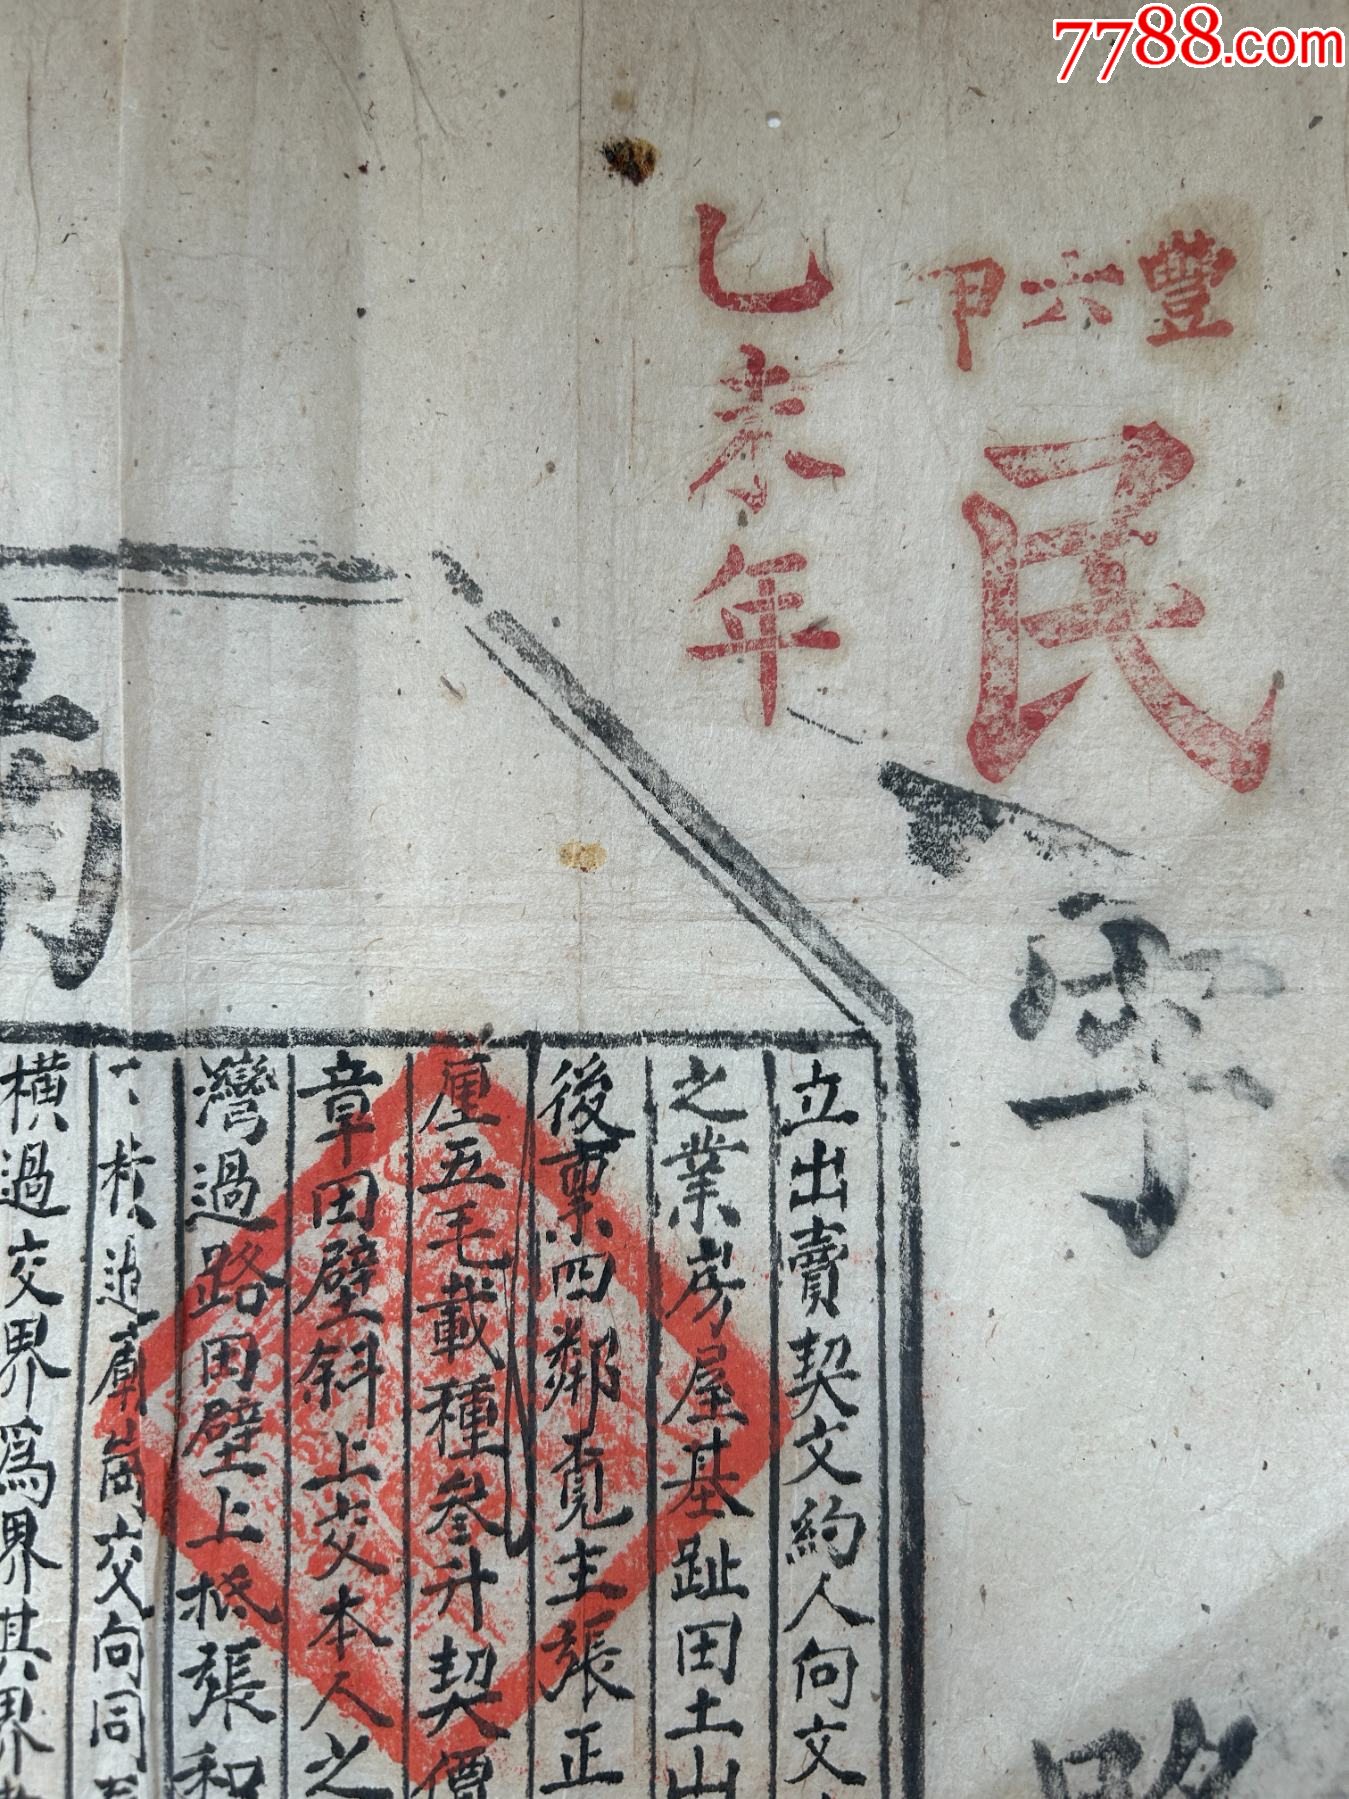 7788.com
豐六甲
民
乙未年
字
立出賣契文約人向文
之業房屋基趾田土山
後東四鄰覓主張正
厘五毛載種叁升契價
章田壁斜上交本人之
灣過路田壁上抵張和
橫過交界爲界其界